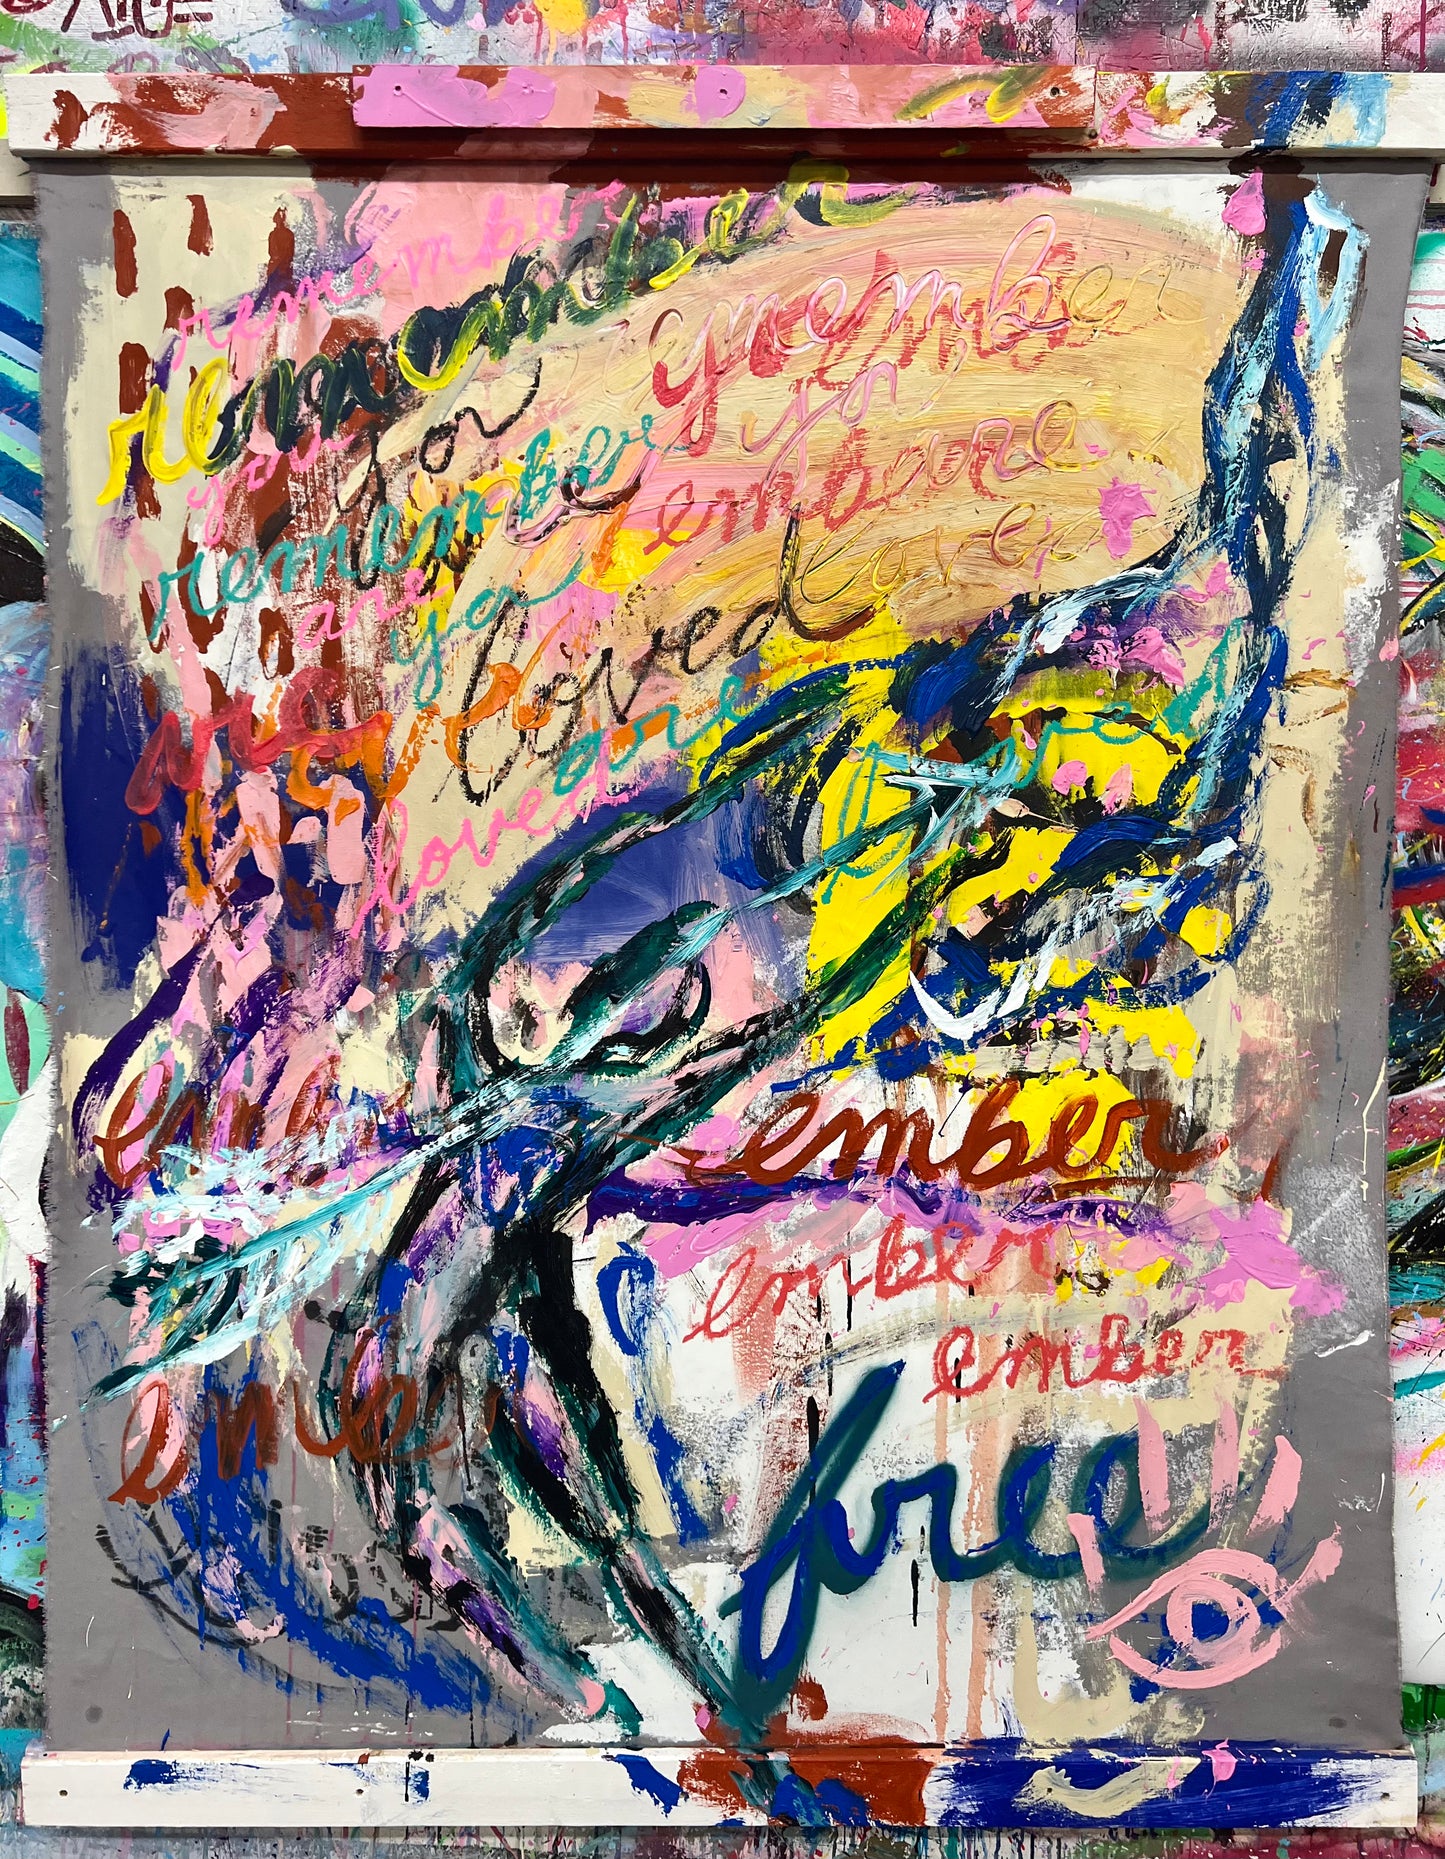 remember
remember
remember
you
yo
yo
remember
embare
are
ya
loved
loved
are
are
loved
loved
ember
ember
ember
ember
ember
free